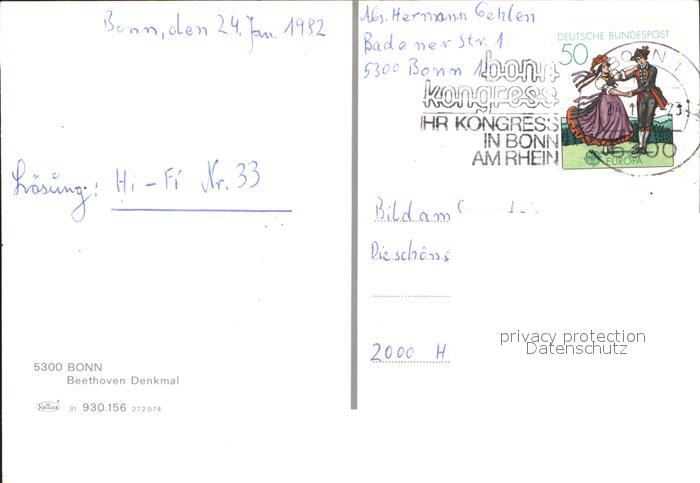 Bonn, den 24. Jan. 1982
Lösung: Hi-Fi Nr. 33
5300 BONN
Beethoven Denkmal
31 930.156 272074
Abs. Hermann Gehlen
Badener Str. 1
5300 Bonn 1
bonn
kongress
IHR KONGRESS
IN BONN
AM RHEIN
DEUTSCHE BUNDESPOST
50
EUROPA
BONN 1
5300
Bild am
Die schöns
2000 H
privacy protection
Datenschutz